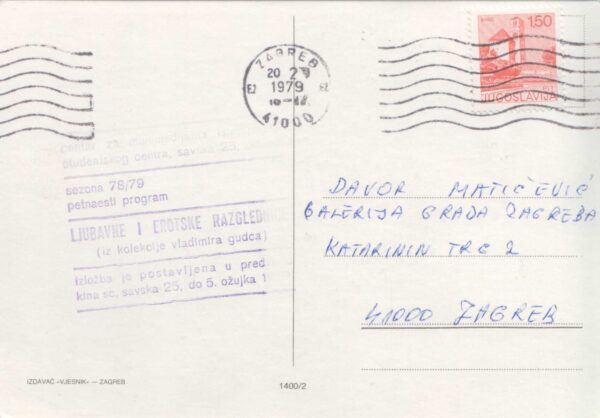 ZAGREB
20 2
1979
41000
1.50
JUGOSLAVIJA
studentskog centra, savska 25
sezona 78/79
petnaesti program
LJUBAVNE I EROTSKE RAZGLEDNICE
(iz kolekcije vladimira gudca)
izložba je postavljena u pred
kina sc, savska 25, do 5. ožujka 1
DAVOR MATIČEVIĆ
GALERIJA GRADA ZAGREBA
KATARININ TRG 2
41000 ZAGREB
IZDAVAČ «VJESNIK» — ZAGREB
1400/2